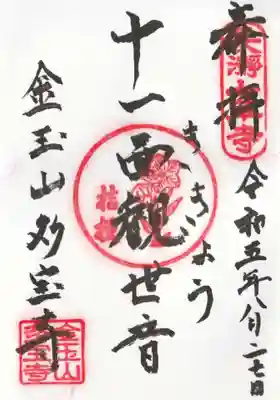 奉拝
令和五年八月二七日
ききょう
十一面観世音
桔梗
金玉山妙宝寺
金玉山
妙宝寺